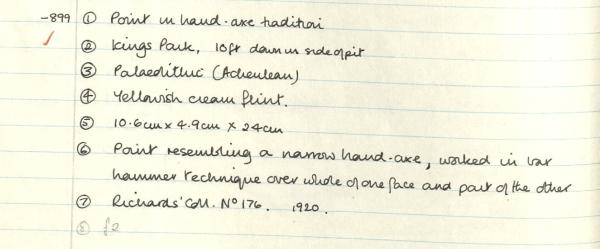 -899 ① Point in hand-axe tradition
② Kings Park, 10ft down in side of pit
③ Palaeolithic (Acheulean)
④ Yellowish cream flint.
⑤ 10.6cm x 4.9cm x 24cm
⑥ Point resembling a narrow hand-axe, worked in bar
hammer technique over whole of one face and part of the other
⑦ Richards' Coll. Nº 176. 1920.
⑧ £2